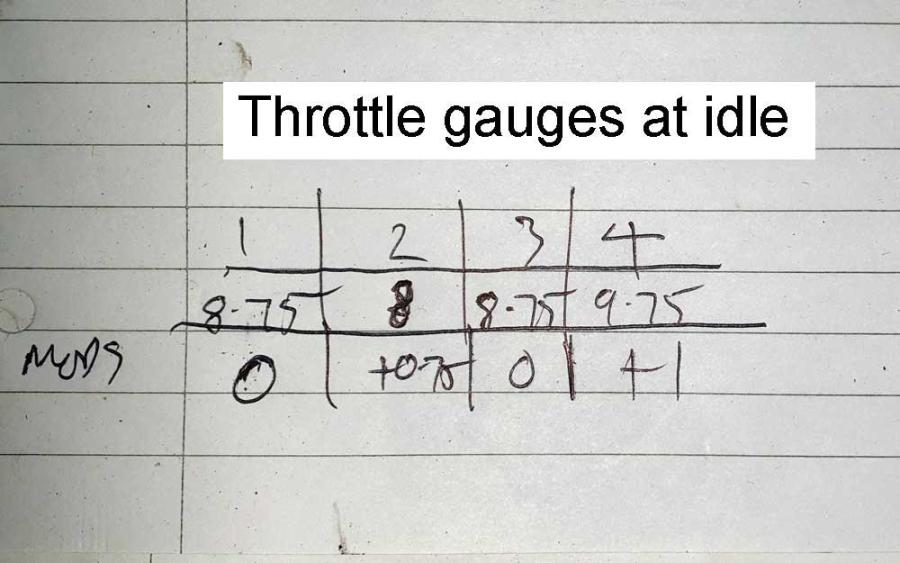 Throttle gauges at idle
1 2 3 4
8.75 8 8.75 9.75
MODS 0 +0.75 0 +1